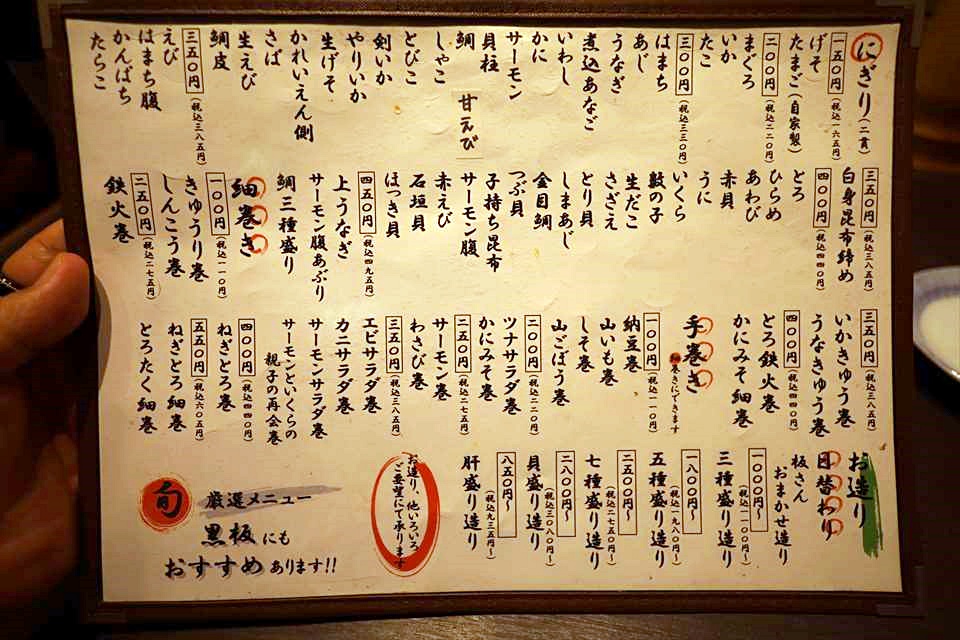 にぎり(二貫)
一五〇円(税込一六五円)
げそ
たまご(自家製)
二〇〇円(税込二二〇円)
まぐろ
いか
たこ
三〇〇円(税込三三〇円)
はまち
あじ
うなぎ
煮込あなご
いわし
かに
サーモン
貝柱
鯛
甘えび
しゃこ
とびこ
剣いか
やりいか
生げそ
かれいえん側
さば
生えび
鯛皮
三五〇円(税込三八五円)
えび
はまち腹
かんぱち
たらこ
三五〇円(税込三八五円)
白身昆布締め
四〇〇円(税込四四〇円)
とろ
ひらめ
あわび
赤貝
うに
いくら
数の子
生だこ
さざえ
とり貝
しまあじ
金目鯛
つぶ貝
子持ち昆布
サーモン腹
赤えび
石垣貝
ほっき貝
四五〇円(税込四九五円)
上うなぎ
サーモン腹あぶり
鯛三種盛り
細巻き
一〇〇円(税込一一〇円)
きゅうり巻
しんこう巻
二五〇円(税込二七五円)
鉄火巻
三五〇円(税込三八五円)
いかきゅう巻
うなきゅう巻
四〇〇円(税込四四〇円)
とろ鉄火巻
かにみそ細巻
手巻き
細巻きにできます
一〇〇円(税込一一〇円)
納豆巻
山いも巻
しそ巻
山ごぼう巻
二〇〇円(税込二二〇円)
ツナサラダ巻
かにみそ巻
二五〇円(税込二七五円)
サーモン巻
わさび巻
三五〇円(税込三八五円)
エビサラダ巻
カニサラダ巻
サーモンサラダ巻
サーモンといくらの
親子の再会巻
四〇〇円(税込四四〇円)
ねぎとろ巻
五五〇円(税込六〇五円)
ねぎとろ細巻
とろたく細巻
お造り
日替わり
板さん
おまかせ造り
一〇〇〇円〜
(税込一一〇〇円)
三種盛り造り
一八〇〇円〜
(税込一九八〇円)
五種盛り造り
二五〇〇円〜
(税込二七五〇円)
七種盛り造り
二八〇〇円〜
(税込三〇八〇円)
貝盛り造り
八五〇円〜
(税込九三五円)
肝盛り造り
お造り、他いろいろ
ご要望にて承ります
旬
厳選メニュー
黒板にも
おすすめあります!!